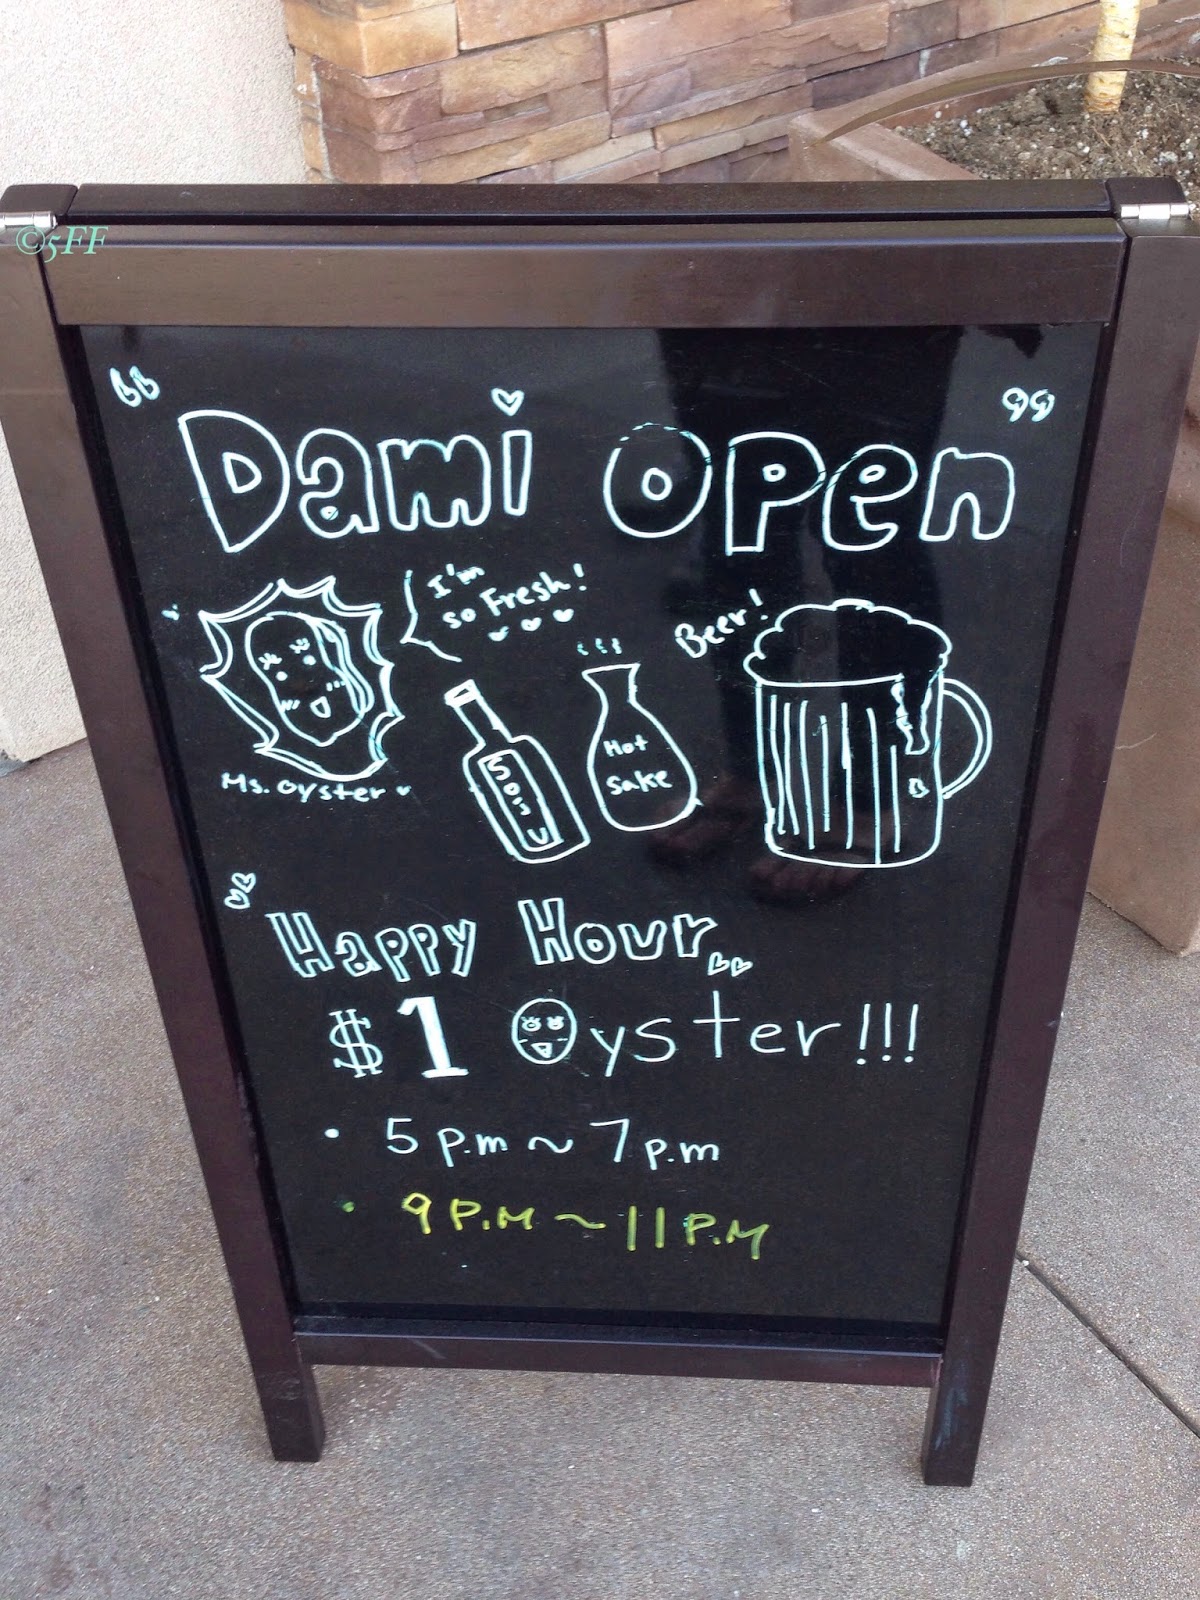 ©5FF
“Dami open”
I'm
so Fresh!
Beer!
Ms. oyster
Soju
Hot
Sake
Happy Hour
$1 Oyster!!!
• 5 p.m ~ 7 p.m
• 9 P.M ~ 11 P.M